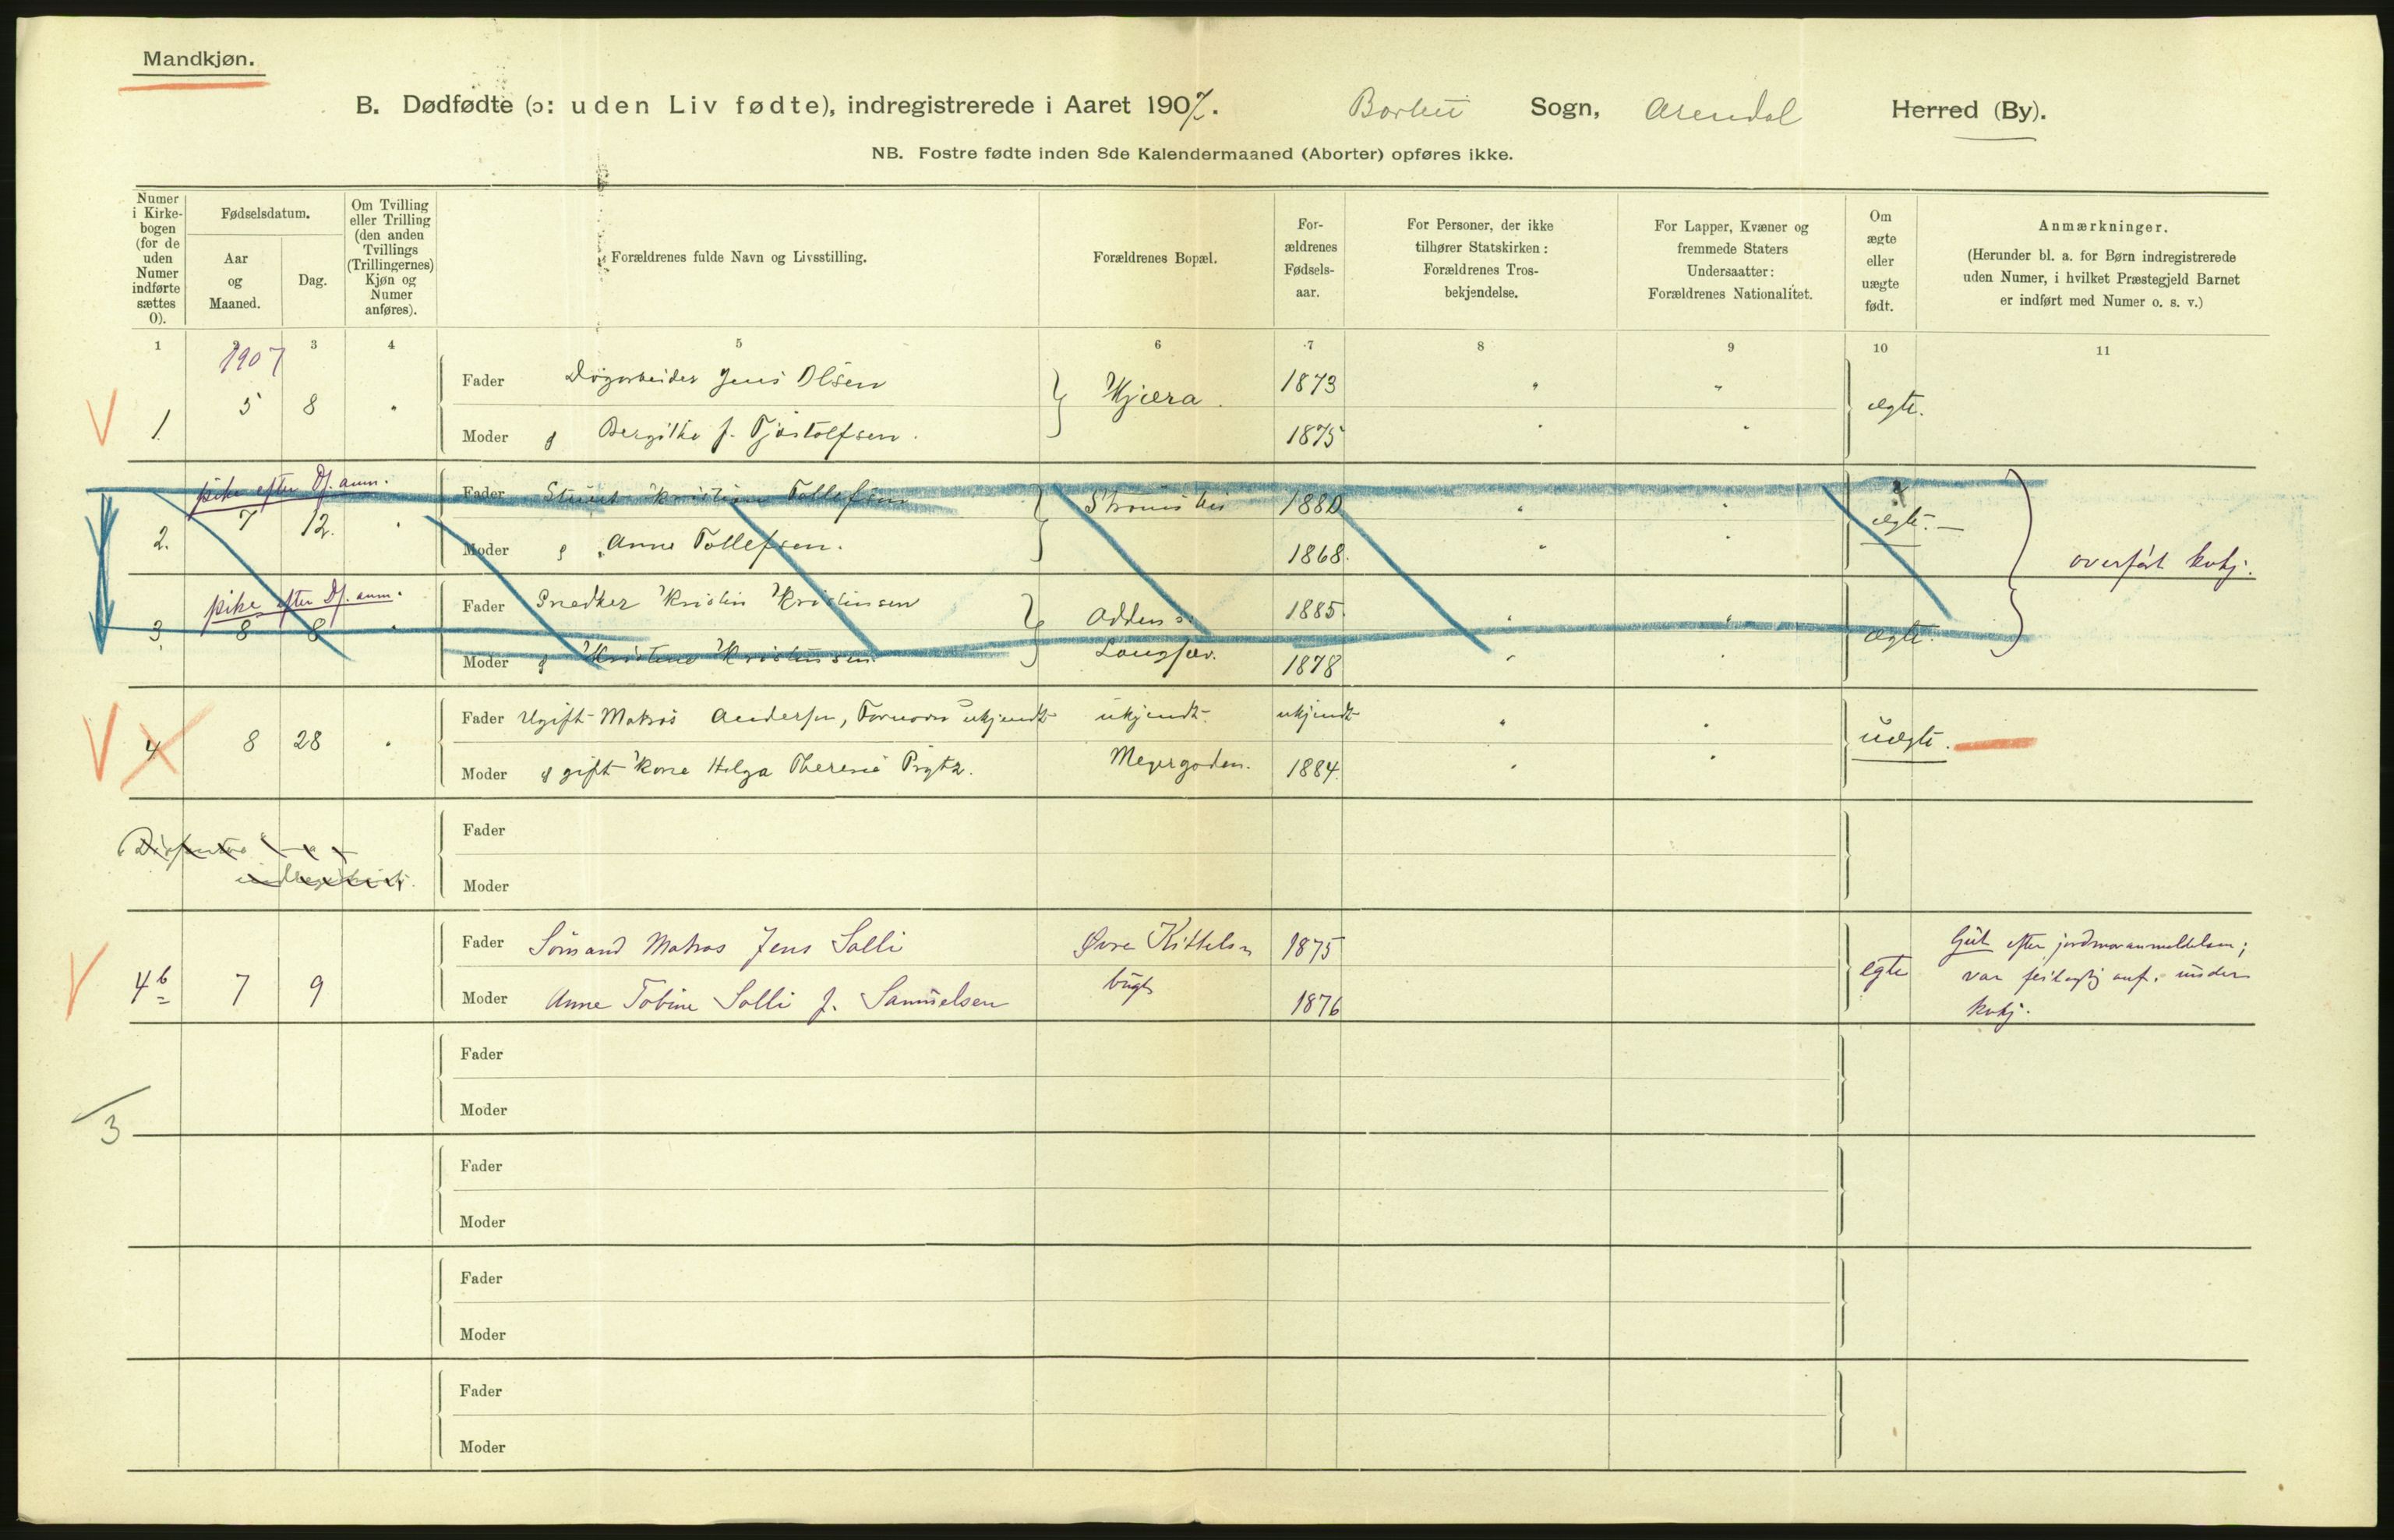 Mandkjøn.
B. Dødfødte (ɔ: uden Liv fødte), indregistrerede i Aaret 1907. Sogn, Arendal Herred (By).
NB. Fostre fødte inden 8de Kalendermaaned (Aborter) opføres ikke.
Numer i Kirkebogen (for de uden Numer indførte sættes 0).
Fødselsdatum.
Aar og Maaned.
Dag.
Om Tvilling eller Trilling (den anden Tvillings (Trillingernes) Kjøn og Numer anføres).
Forældrenes fulde Navn og Livsstilling.
Forældrenes Bopæl.
Forældrenes Fødselsaar.
For Personer, der ikke tilhører Statskirken: Forældrenes Trosbekjendelse.
For Lapper, Kvæner og fremmede Staters Undersaatter: Forældrenes Nationalitet.
Om ægte eller uægte født.
Anmærkninger.
(Herunder bl. a. for Børn indregistrerede uden Numer, i hvilket Præstegjeld Barnet er indført med Numer o. s. v.)
1 2 3 4 5 6 7 8 9 10 11
1907
Fader Jens Olsen 1873 " "
1. 5 8 " Kjæra. ægte.
Moder g f. 1875 " "
pike efter Df. anm.
Fader Kristian Tollefsen 1880 " "
2. 7 12. " ægte. —
Moder g Anne Tollefsen. 1868. " "
overført kvkj.
pike efter Df. anm.
Fader Snedker Kristen Kristensen 1885. " "
3. 8 8 " ægte.
Moder g Kristensen 1878 " "
Fader Ugift Matros Andersen, Fornavn ukjendt ukjendt. ukjendt " "
4 8 28 " uægte.
Moder g gift Kone Helga Therese 1884. " "
Fader
Moder
Fader Sømand Matros Jens Solli Øvre 1875
4b 7 9 egte
Moder Anne Tobine Solli f. Samuelsen 1876
Gut efter jordmoranmeldelsen;
var feilagtig anf. under
kvkj.
Fader
Moder
3
Fader
Moder
Fader
Moder
Fader
Moder